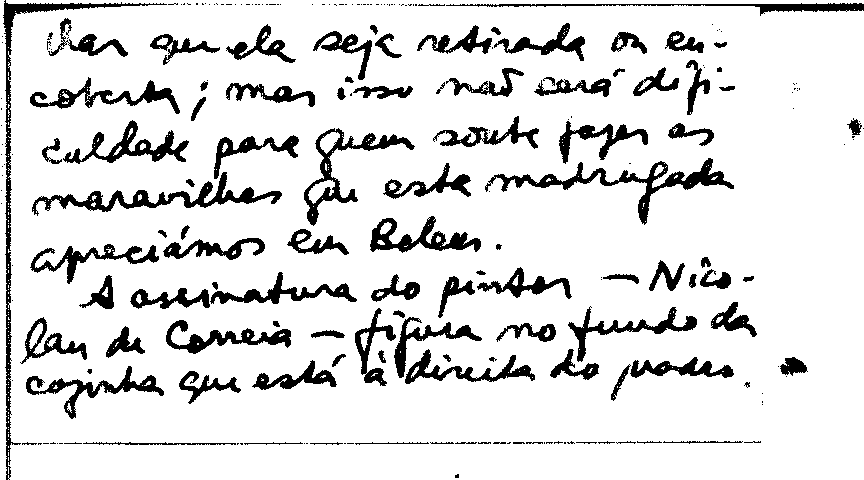 char que ela seja retirada ou en-
coberta; mas isso não será difi-
culdade para quem soube fazer as
maravilhas que esta madrugada
apreciámos em Belem.
A assinatura do pintor — Nico-
lau de Correia — figura no fundo da
cozinha que está à direita do quadro.